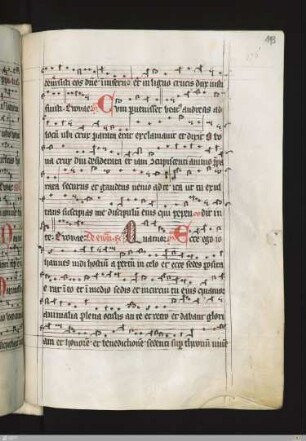 193
tradidisti eos dne in seruo et in ligno crucis dux iusti
fuisti Evovae Cum peruenisset beat andreas ad
locu ubi crux parata erat exclamauit et dixit O bo
na crux diu desiderata et iam concupiscenti animo pa
rata securus et gaudens uenio ad te ita ut tu exul
tans suscipias me discipulu eius qui pepen dit in
te Evovae De ewan Ecce ego io
hannes uidi hostiu apertu in celo et ecce sedes posita
e rat i eo et i medio sedis et in circuitu eius quatuor
animalia plena oculis an te et retro et dabant glori
am et honore et benedictione sedenti sup thronu uiue